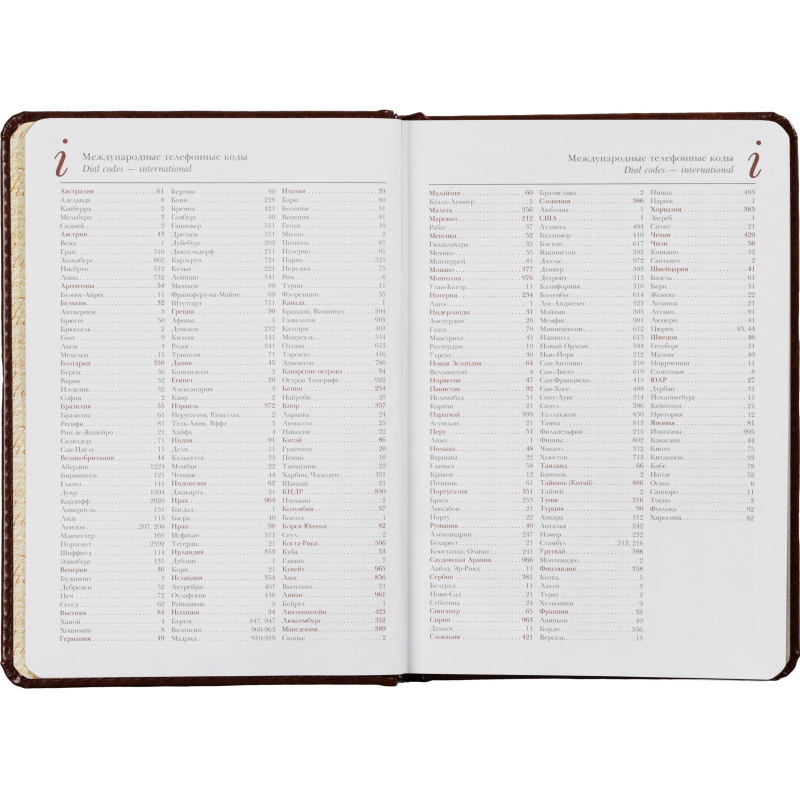 i
Международные телефонные коды
Dial codes — international
Австралия 61
Аделаида 8
Канберра 2
Мельбурн 3
Сидней 2
Австрия 43
Вена 1
Грац 316
Зальцбург 662
Инсбрук 512
Линц 732
Аргентина 54
Буэнос-Айрес 11
Бельгия 32
Антверпен 3
Брюгге 50
Брюссель 2
Гент 9
Льеж 4
Мехелен 15
Болгария 359
Бургас 56
Варна 52
Пловдив 32
София 2
Бразилия 55
Бразилиа 61
Ресифи 81
Рио-де-Жанейро 21
Салвадор 71
Сан-Паулу 11
Великобритания 44
Абердин 1224
Бирмингем 121
Глазго 141
Дувр 1304
Кардифф 2920
Ливерпуль 151
Лидс 113
Лондон 207, 208
Манчестер 161
Портсмут 2392
Шеффилд 114
Эдинбург 131
Венгрия 36
Будапешт 1
Дебрецен 52
Печ 72
Сегед 62
Вьетнам 84
Ханой 4
Хошимин 8
Германия 49
Берлин 30
Бонн 228
Бремен 421
Гамбург 40
Ганновер 511
Дрезден 351
Дуйсбург 203
Дюссельдорф 211
Карлсруэ 721
Кельн 221
Лейпциг 341
Мюнхен 89
Франкфурт-на-Майне 69
Штутгарт 711
Греция 30
Афины 1
Домокос 232
Ларисса 41
Родос 241
Триполи 71
Дания 45
Копенгаген 3
Египет 20
Александрия 3
Каир 2
Израиль 972
Иерусалим, Рамаллах 2
Тель-Авив, Яффа 3
Хайфа 4
Индия 91
Дели 11
Калькутта 33
Мумбаи 22
Ченнаи 44
Индонезия 62
Джакарта 21
Ирак 964
Багдад 1
Басра 40
Иран 98
Исфахан 311
Тегеран 21
Ирландия 353
Дублин 1
Корк 21
Исландия 354
Акюрейри 461
Рейкьявик 5
Испания 34
Бургос 847, 947
Валенсия 960-963
Мадрид 910-919
Италия 39
Бари 80
Болонья 51
Венеция 41
Генуя 10
Милан 2
Неаполь 81
Палермо 91
Парма 521
Перуджа 75
Рим 6
Турин 11
Флоренция 55
Канада
Брандон, Виннипег 204
Гамильтон 905
Калгари 403
Монреаль 514
Оттава 613
Торонто 416
Эдмонтон 780
Канарские острова 34
Остров Тенерифе 922
Кения 254
Найроби 20
Кипр 357
Ларнака 24
Лимассол 25
Никосия 22
Китай 86
Гуанчжоу 20
Пекин 10
Тяньцзинь 22
Харбин, Чжаодун 451
Шанхай 21
КНДР 850
Пхеньян 2
Колумбия 57
Богота 1
Корея Южная 82
Сеул 2
Коста-Рика 506
Куба 53
Гавана 7
Кувейт 965
Лаос 856
Вьентьян 21
Ливан 961
Бейрут 1
Лихтенштейн 423
Люксембург 352
Македония 389
Скопье 2
i
Международные телефонные коды
Dial codes — international
Малайзия 60
Куала-Лумпур 3
Мальта 356
Марокко 212
Рабат 37
Мексика 52
Гвадалахара 33
Мехико 55
Монтеррей 81
Монако 377
Монголия 976
Улан-Батор 11
Нигерия 234
Лагос 1
Нидерланды 31
Амстердам 20
Гаага 70
Маастрихт 43
Роттердам 10
Утрехт 30
Новая Зеландия 64
Веллингтон 4
Норвегия 47
Пакистан 92
Исламабад 51
Карачи 21
Парагвай 595
Асунсьон 21
Перу 51
Лима 1
Польша 48
Варшава 22
Гданьск 58
Краков 12
Познань 61
Португалия 351
Брага 253
Лиссабон 21
Порту 22
Румыния 40
Александрия 247
Бухарест 21
Констанца, Олимп 241
Саудовская Аравия 966
Лайла, Эр-Рияд 1
Сербия 381
Белград 11
Нови-Сад 21
Суботица 24
Сингапур 65
Сирия 963
Дамаск 11
Словакия 421
Братислава 2
Словения 386
Любляна 1
США 1
Атланта 404
Балтимор 410
Бостон 617
Вашингтон 202
Даллас 972
Денвер 303
Детройт 313
Калифорния 310
Колумбус 614
Лос-Анджелес 323
Майами 305
Мемфис 901
Миннеаполис 612
Нашвилл 615
Новый Орлеан 504
Нью-Йорк 212
Сан-Антонио 210
Сан-Диего 619
Сан-Франциско 415
Сан-Хосе 408
Сент-Луис 314
Сиэтл 206
Таллахасси 850
Тампа 813
Филадельфия 215
Финикс 602
Чикаго 312
Хьюстон 713
Таиланд 66
Бангкок 2
Тайвань (Китай) 886
Тайпей 2
Тунис 216
Турция 90
Анкара 312
Анталья 242
Измир 232
Стамбул 212, 216
Уругвай 598
Монтевидео 2
Финляндия 358
Котка 5
Лахти 3
Турку 2
Хельсинки 9
Франция 33
Авиньон 49
Бордо 556
Версаль 13
Ницца 493
Париж 1
Хорватия 385
Загреб 1
Сплит 21
Чехия 420
Чили 56
Копьяпо 52
Сантьяго 2
Швейцария 41
Базель 61
Берн 31
Женева 22
Лозанна 21
Лугано 91
Люцерн 41
Цюрих 43, 44
Швеция 46
Гетеборг 31
Мальме 40
Норрчепинг 11
Стокгольм 8
ЮАР 27
Дурбан 31
Йоханнесбург 11
Кейптаун 21
Претория 12
Япония 81
Иокогама 995
Канасаки 44
Киото 75
Китакюсю 93
Кобе 78
Нагоя 52
Осака 6
Саппоро 11
Токио 3
Фукуока 92
Хиросима 82